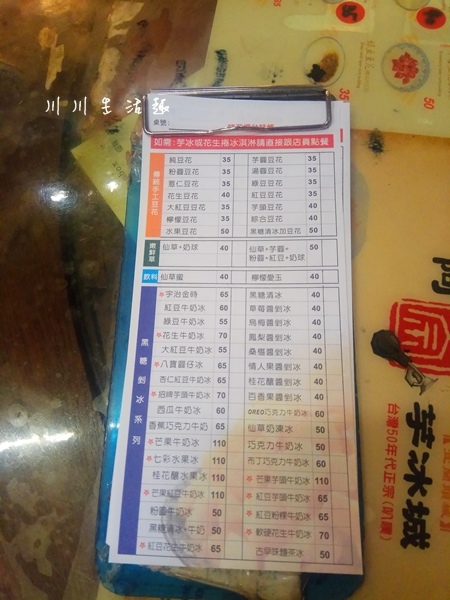 川川生活趣
桌號:
如需:芋冰或花生捲冰淇淋請直接跟店員點餐
傳統手工豆花
純豆花 35 芋圓豆花 35
粉圓豆花 35 湯圓豆花 35
薏仁豆花 35 綠豆豆花 35
花生豆花 40 紅豆豆花 35
大紅豆豆花 35 芋頭豆花 40
檸檬豆花 35 綜合豆花 40
水果豆花 50 黑糖清冰加豆花 50
嫩鮮草
仙草+奶球 40 仙草+芋圓+ 50
粉圓+紅豆+奶球
飲料
仙草蜜 40 檸檬愛玉 40
黑糖剉冰系列
宇治金時 65 黑糖清冰 40
紅豆牛奶冰 60 草莓醬剉冰 40
綠豆牛奶冰 55 烏梅醬剉冰 40
花生牛奶冰 70 鳳梨醬剉冰 40
大紅豆牛奶冰 55 桑椹醬剉冰 40
八寶圓仔冰 65 情人果醬剉冰 40
杏仁紅豆牛奶冰 65 桂花釀剉冰 40
招牌芋頭牛奶冰 70 百香果醬剉冰 40
西瓜牛奶冰 60 OREO巧克力牛奶冰 60
香蕉巧克力牛奶 65 仙草奶凍冰 50
芒果牛奶冰 110 巧克力牛奶冰 50
七彩水果冰 110 布丁巧克力牛奶冰 60
桂花釀水果冰 110 芒果芋頭牛奶冰
芒果紅豆牛奶冰 110 紅豆芋頭牛奶冰 65
粉圓牛奶冰 50 紅豆粉粿牛奶冰 65
黑糖清冰+牛奶 50 軟硬花生牛奶冰 70
紅豆花生牛奶冰 65 古早味麵茶冰 50
35
50
芋冰城
台灣50年代正宗(叭噗)